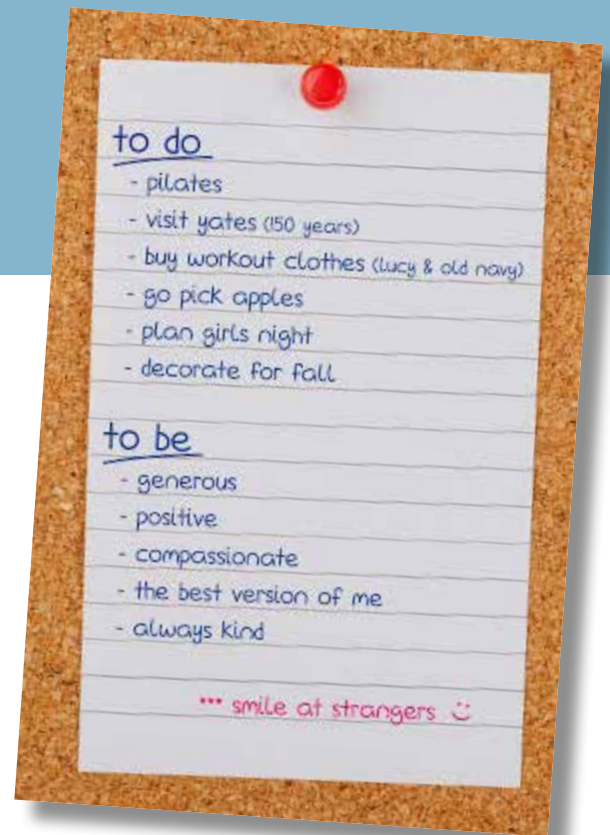 to do
- pilates
- visit yates (150 years)
- buy workout clothes (lucy & old navy)
- go pick apples
- plan girls night
- decorate for fall
to be
- generous
- positive
- compassionate
- the best version of me
- always kind
*** smile at strangers